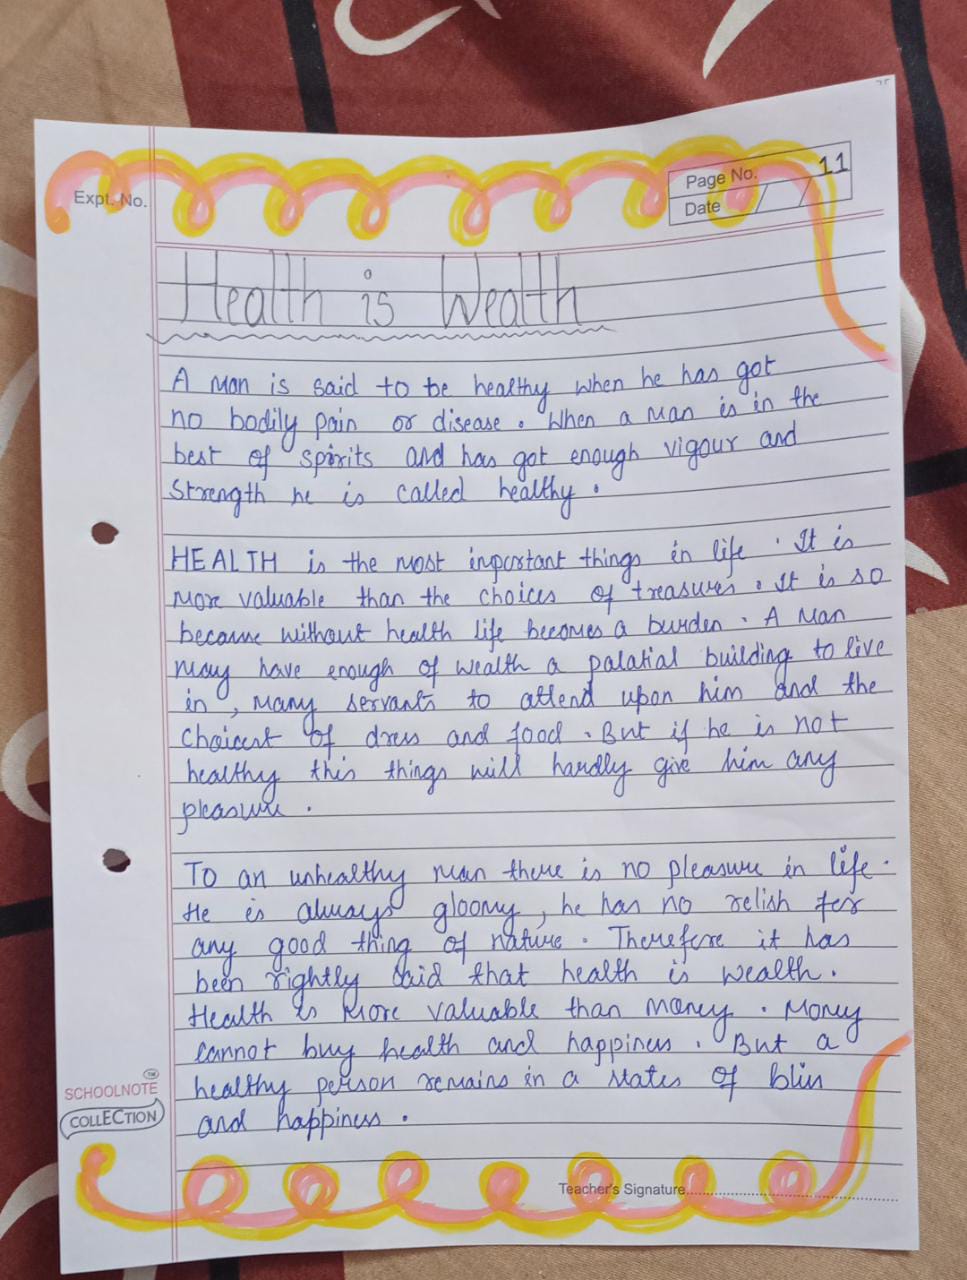 Expt. No.
Page No. 11
Date
Health is Wealth
A man is said to be healthy when he has got
no bodily pain or disease. When a man is in the
best of spirits and has got enough vigour and
strength he is called healthy.
HEALTH is the most important things in life. It is
more valuable than the choices of treasures. It is so
because without health life becomes a burden. A man
may have enough of wealth a palatial building to live
in, many servants to attend upon him and the
choicest of dress and food. But if he is not
healthy this things will hardly give him any
pleasure.
To an unhealthy man there is no pleasure in life.
He is always gloomy, he has no relish for
any good thing of nature. Therefore it has
been rightly said that health is wealth.
Health is more valuable than money. Money
cannot buy health and happiness. But a
healthy person remains in a states of bliss
and happiness.
TM
SCHOOLNOTE
COLLECTION
Teacher's Signature